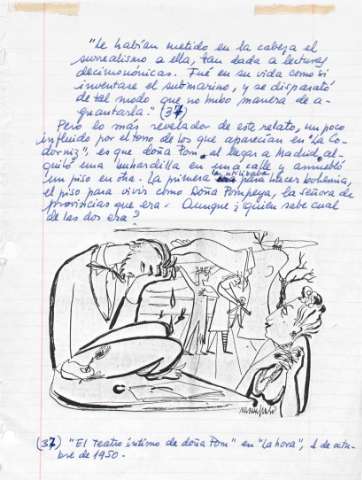 "Le habían metido en la cabeza el
surrealismo a ella, tan dada a lecturas
decimonónicas. Fué en su vida como si
inventase el submarino, y se disparató
de tal modo que no hubo manera de a-
guantarla." (37)
Pero lo más revelador de este relato, un poco
influido por el tono de los que aparecían en "La Co-
dorniz", es que doña Pom, al llegar a Madrid, al-
quiló una buhardilla en una calle y amuebló
un piso en otra. La primera la utilizaba para hacer bohemia,
el piso para vivir como Doña Pompeya, la señora de
provincias que era. Aunque ¿quién sabe cual
de las dos era?
(37) "El Teatro íntimo de doña Pom" en "La hora", 1 de octu-
bre de 1950.-